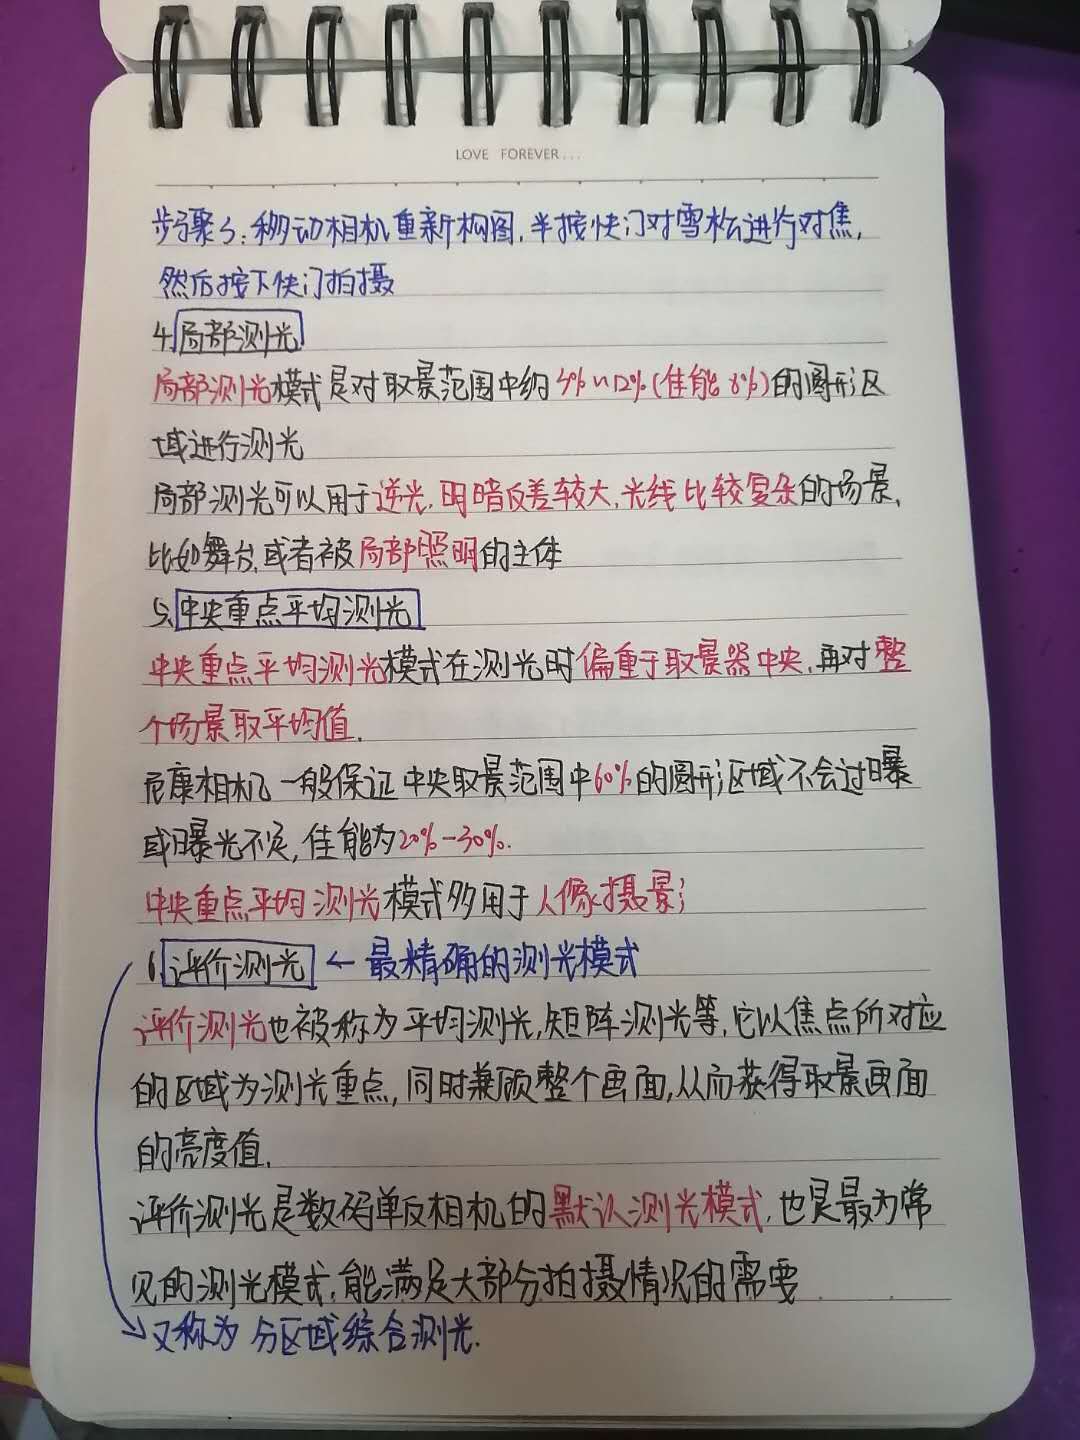 LOVE FOREVER...
步骤3:移动相机重新构图,半按快门对雪松进行对焦,
然后按下快门拍摄
4.局部测光
局部测光模式是对取景范围中约 %~12%(佳能8%)的圆形区
域进行测光
局部测光可以用于逆光.明暗反差较大,光线比较复杂的场景,
比如舞台,或者被局部照明的主体
5.中央重点平均测光
中央重点平均测光模式在测光时偏重于取景器中央,再对整
个场景取平均值.
尼康相机一般保证中央取景范围中60%的圆形区域不会过曝
或曝光不足,佳能为20%-30%.
中央重点平均测光模式多用于人像摄影
6.评价测光 ← 最精确的测光模式
评价测光也被称为平均测光,矩阵测光等,它以焦点所对应
的区域为测光重点,同时兼顾整个画面,从而获得取景画面
的亮度值.
评价测光是数码单反相机的默认测光模式,也是最为常
见的测光模式,能满足大部分拍摄情况的需要
又称为 分区域综合测光.